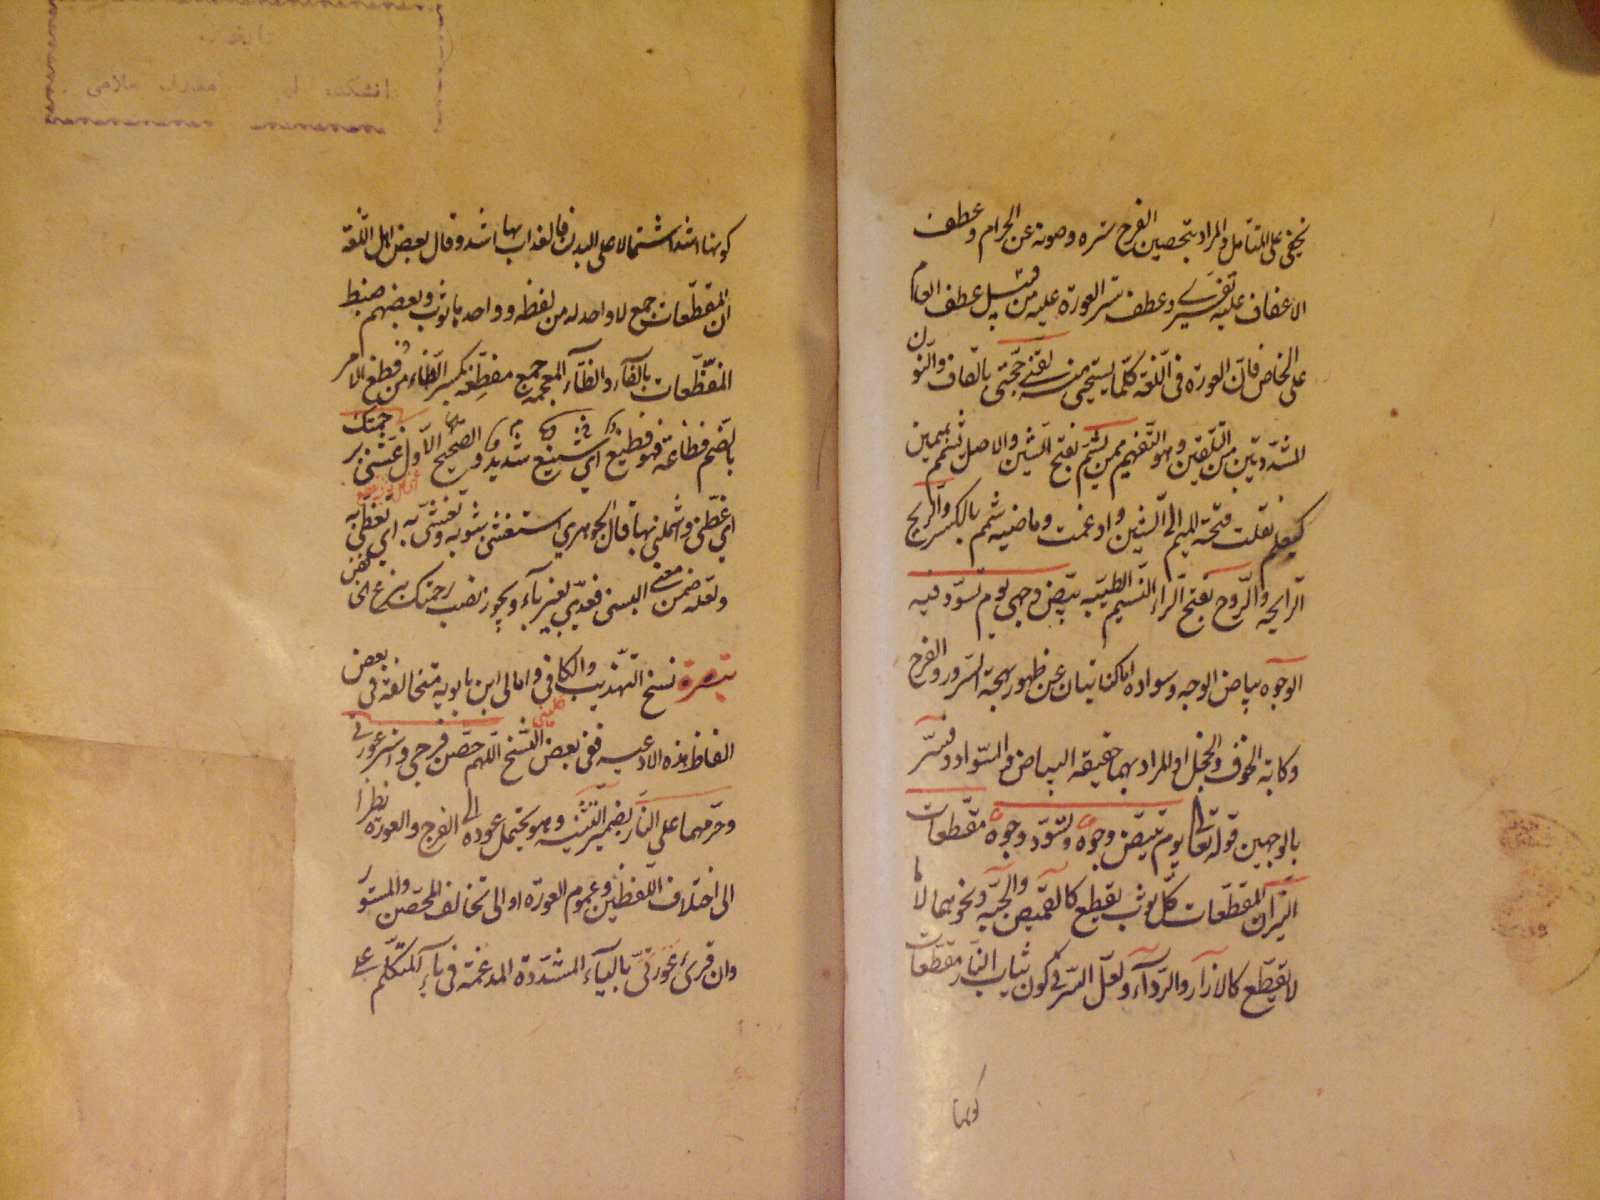 يخفى على المتامل والمراد بتحصين الفرج ستره وصونه عن الحرام وعطف
الاعفاف عليه تفسيري وعطف ستر العورة عليه من قبيل عطف العام
على الخاص فان العورة في اللغة كلما يستحيى منه لقني حجتي بالقاف والنون
المشددتين من التلقين وهو التفهيم ممن يشم بفتح الشين والاصل يشمم بميمين
كيعلم نقلت فتحة الميم الى الشين وادغمت وماضيه شمم بالكسر والريح
الرايحة والروح بفتح الراء النسيم الطيبة بيض وجهي يوم تسود فيه
الوجوه بياض الوجه وسواده اما كنايتان عن ظهور بهجة السرور والفرح
وكابة الخوف والخجل او المراد بهما حقيقة البياض والسواد وفسر
بالوجهين قوله تعالى يوم تبيض وجوه وتسود وجوه مقطعات
النيران المقطعات كل ثوب يقطع كالقميص والجبة ونحوهما لا ما
لا يقطع كالازار والرداء ولعل السر في كون ثياب النار مقطعات
كونها
كونها اشد اشتمالا على البدن فالعذاب بها اشد وقال بعض اهل اللغة
ان المقطعات جمع لا واحد له من لفظه وواحدها ثوب وبعضهم ضبط
المفظعات بالفاء والظاء المعجمة جمع مفظعة بكسر الظاء من فظع الامر
بالضم فظاعة فهو فظيع اي شنيع شديد والصحيح الاول غشني برحمتك
اي غطني واشملني بها قال الجوهري استغشى بثوبه وتغشى به اي تغطى به
ولعله ضمن معنى البسني فعدي بغير باء ويجوز نصب رحمتك بنزع الخافض
تبصرة نسخ التهذيب والكافي وامالي ابن بابويه متخالفة في بعض
الفاظ هذه الادعيه ففي بعض النسخ اللهم حصن فرجي واستر عورتي
وحرمهما على النار بضمير التثنية وهو يحتمل عوده الى الفرج والعورة نظرا
الى اختلاف اللفظين وعموم العورة او الى تخالف المحصن والمستور
وان قرئ عورتي بالياء المشددة المدغمة في ياء المتكلم على